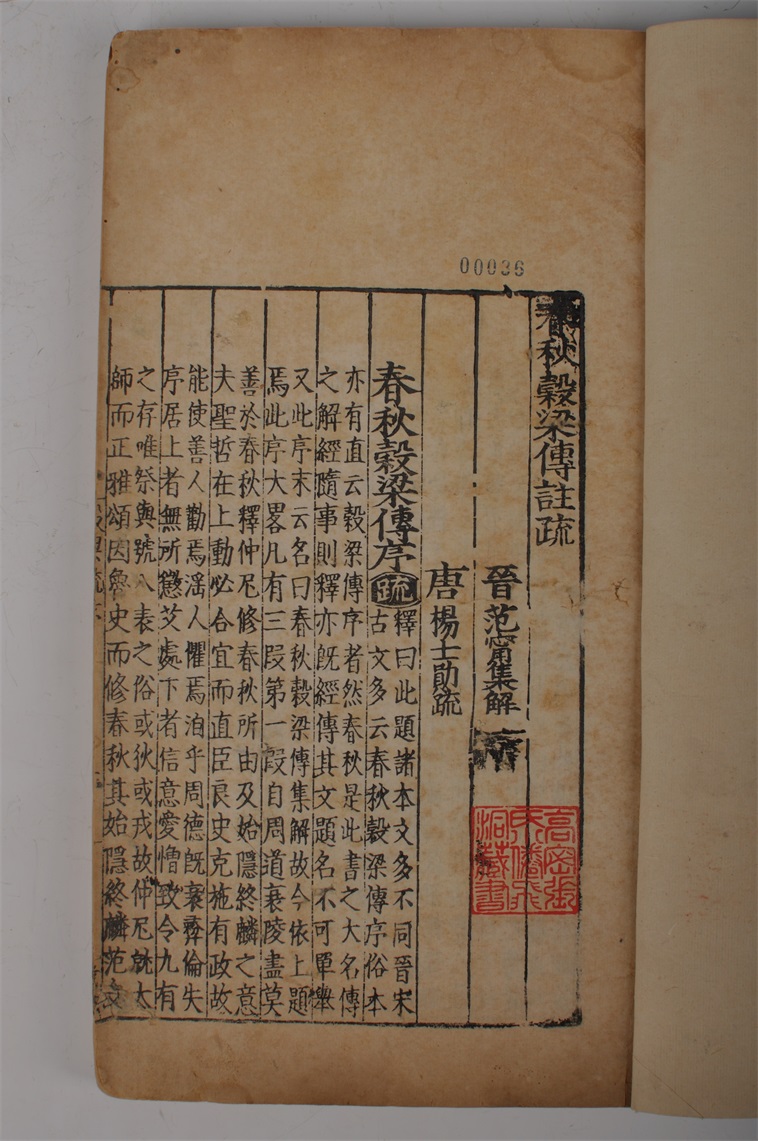 00036
春秋穀梁傳註疏
晉范甯集解
唐楊士勛疏
春秋穀梁傳序疏釋曰此題諸本文多不同晉宋
古文多云春秋穀梁傳序俗本
亦有直云穀梁傳序者然春秋是此書之大名傳
之解經隨事則釋亦既經傳其文題名不可單舉
又此序末云名曰春秋穀梁傳集解故今依上題
焉此序大畧凡有三段第一段自周道衰陵盡莫
善於春秋釋仲尼修春秋所由及始隱終麟之意
夫聖哲在上動必合宜而直臣良史克施有政故
能使善人勸焉淫人懼焉洎乎周德既衰彝倫失
序居上者無所懲艾處下者信意愛憎致令九有
之存唯祭與號八表之俗或狄或戎故仲尼就太
師而正雅頌因魯史而修春秋其始隱終麟范
高密張
氏
洞藏書